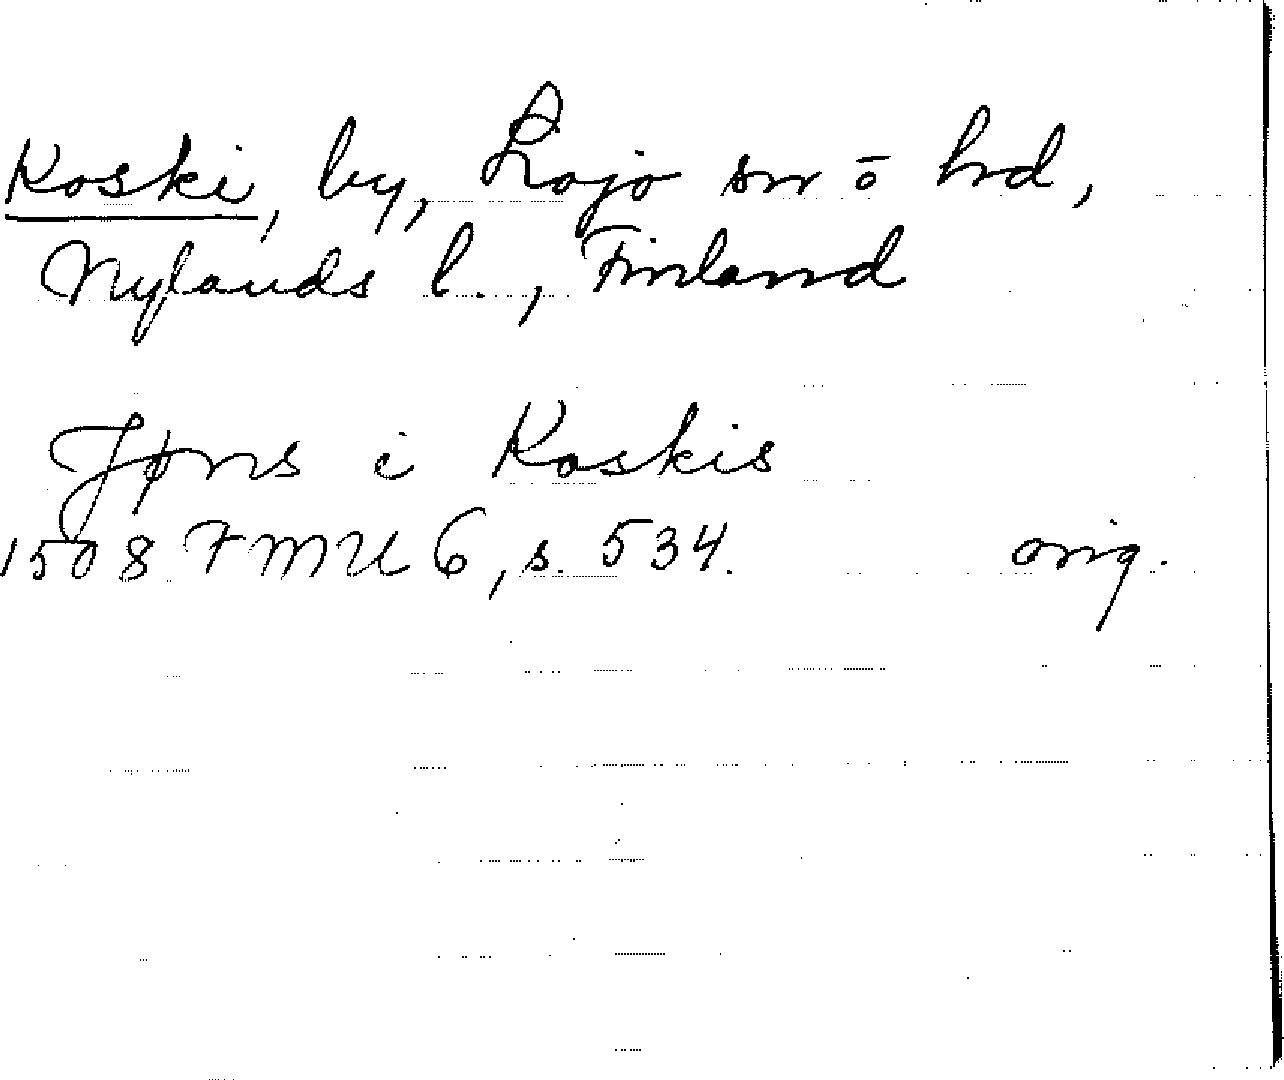 Koski, by, Lojo sn o hrd,
Nylands l., Finland
Jøns i Koskis
1508 FMU 6, s. 534. orig.